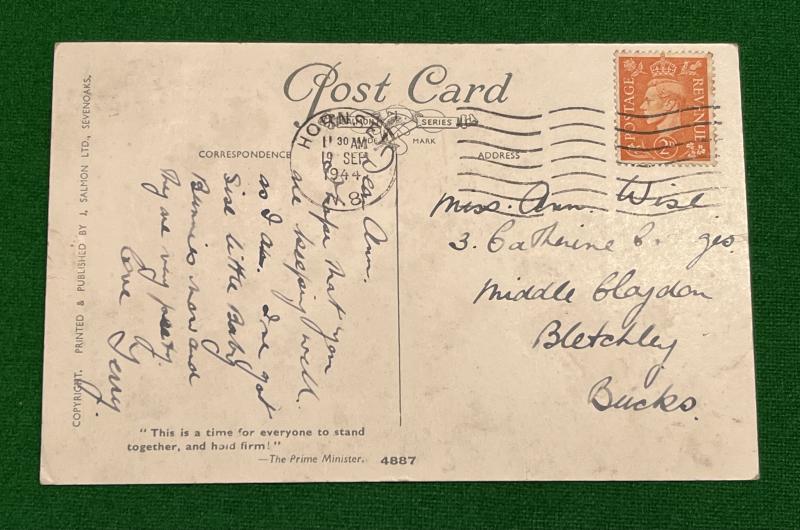 Post Card
SALMON SERIES
TRADE MARK
CORRESPONDENCE
ADDRESS
POSTAGE
REVENUE
2D
HORNSEY
11 30 AM
19 SEP
1944
N 8
COPYRIGHT. PRINTED & PUBLISHED BY J. SALMON LTD., SEVENOAKS.
Dear Ann.
I hope that you
are keeping well.
as I am. I've got
Six little Baby
Bunnies now and
They are very pretty.
Love
Terry
Miss. Ann. Wise
3. Catherine
Middle Claydon
Bletchley
Bucks.
"This is a time for everyone to stand
together, and hold firm!"
—The Prime Minister.
4887